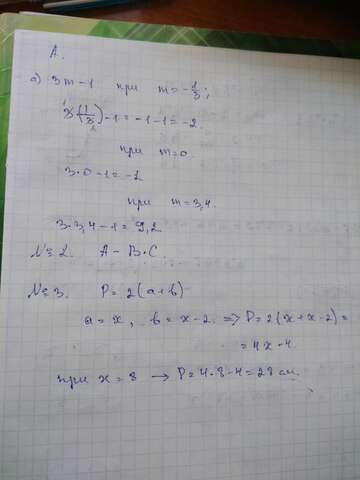 А.
а) 3m-1 при m=-1/3;
3·(-1/3)-1=-1-1=-2.
при m=0.
3·0-1=-1
при m=3,4.
3·3,4-1=9,2
№2. A-B·C.
№3. P=2(a+b)
a=x, b=x-2. => P=2(x+x-2)=
=4x-4
при x=8 → P=4·8-4=28 см.